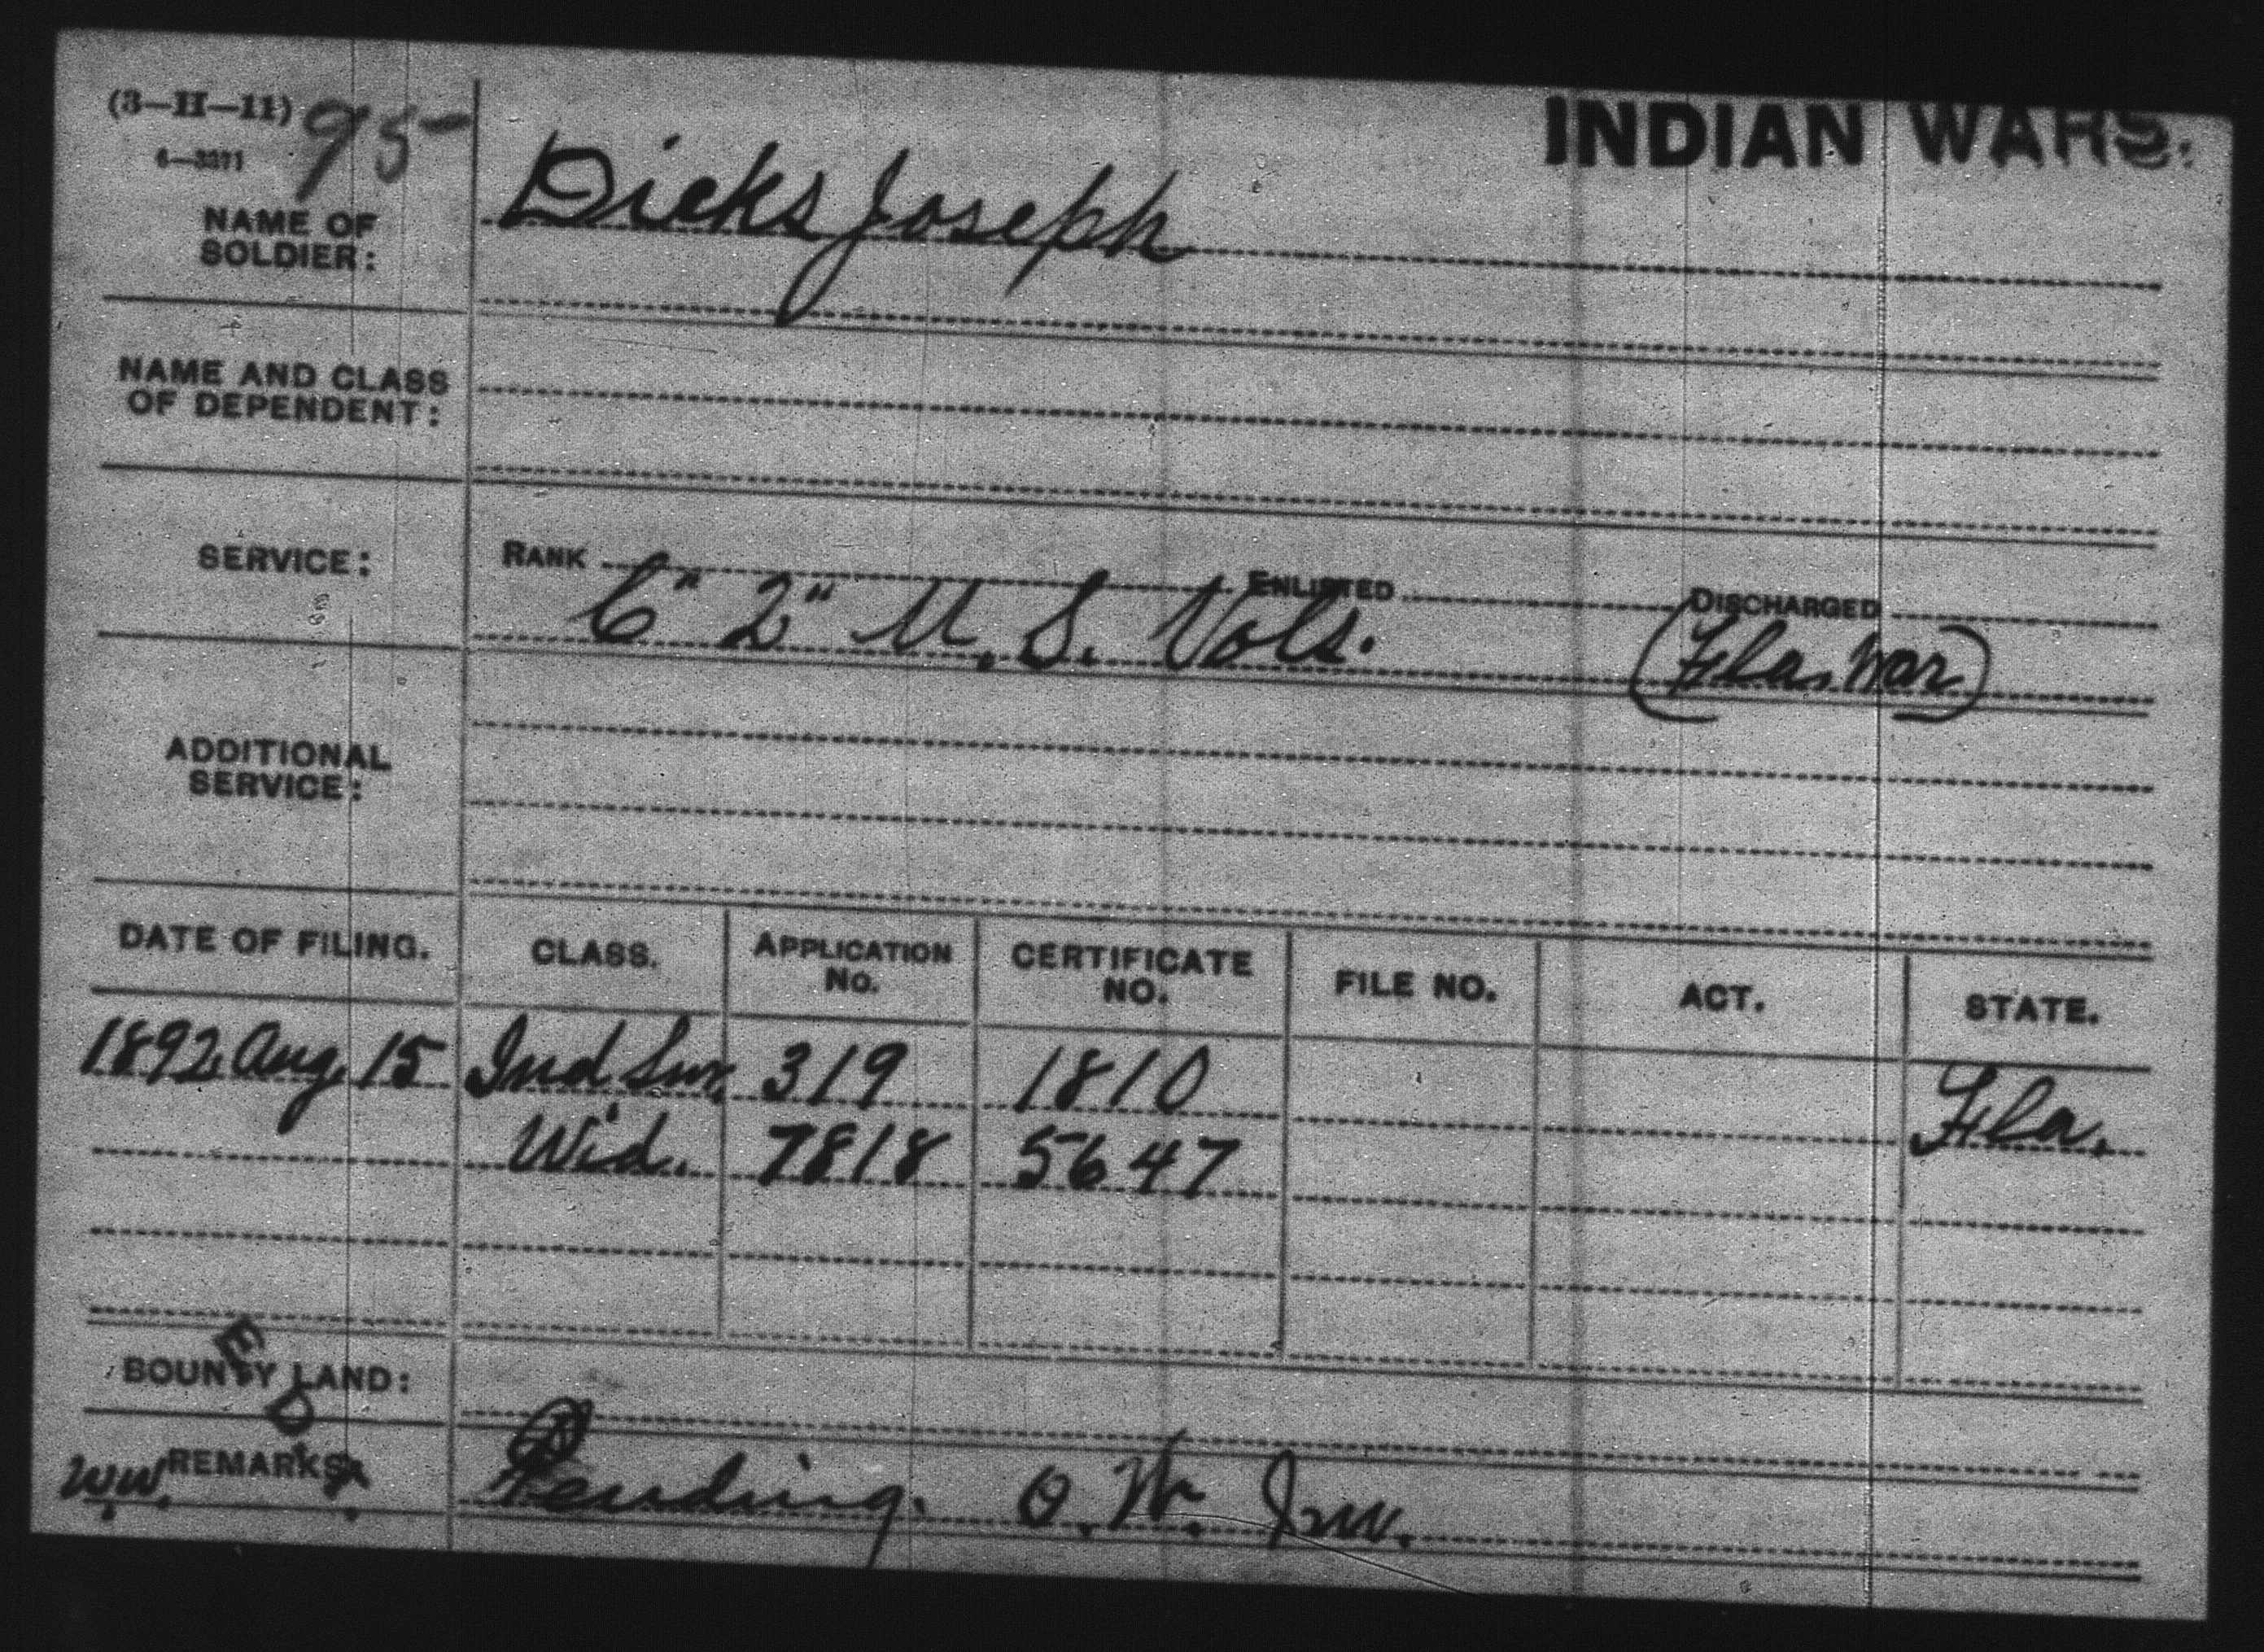 (3—H—11) 95
INDIAN WARS.
6—3371
NAME OF SOLDIER: Dicks Joseph
NAME AND CLASS OF DEPENDENT:
SERVICE: RANK ENLISTED DISCHARGED
C" 2" U.S. Vols. (Fla. War)
ADDITIONAL SERVICE:
DATE OF FILING. CLASS. APPLICATION No. CERTIFICATE NO. FILE NO. ACT. STATE.
1892 Aug. 15 Ind Sur. 319 1810 Fla.
Wid. 7818 5647
BOUNTY LAND:
E D
REMARKS:
W.W. Pending. O. W. Inv.